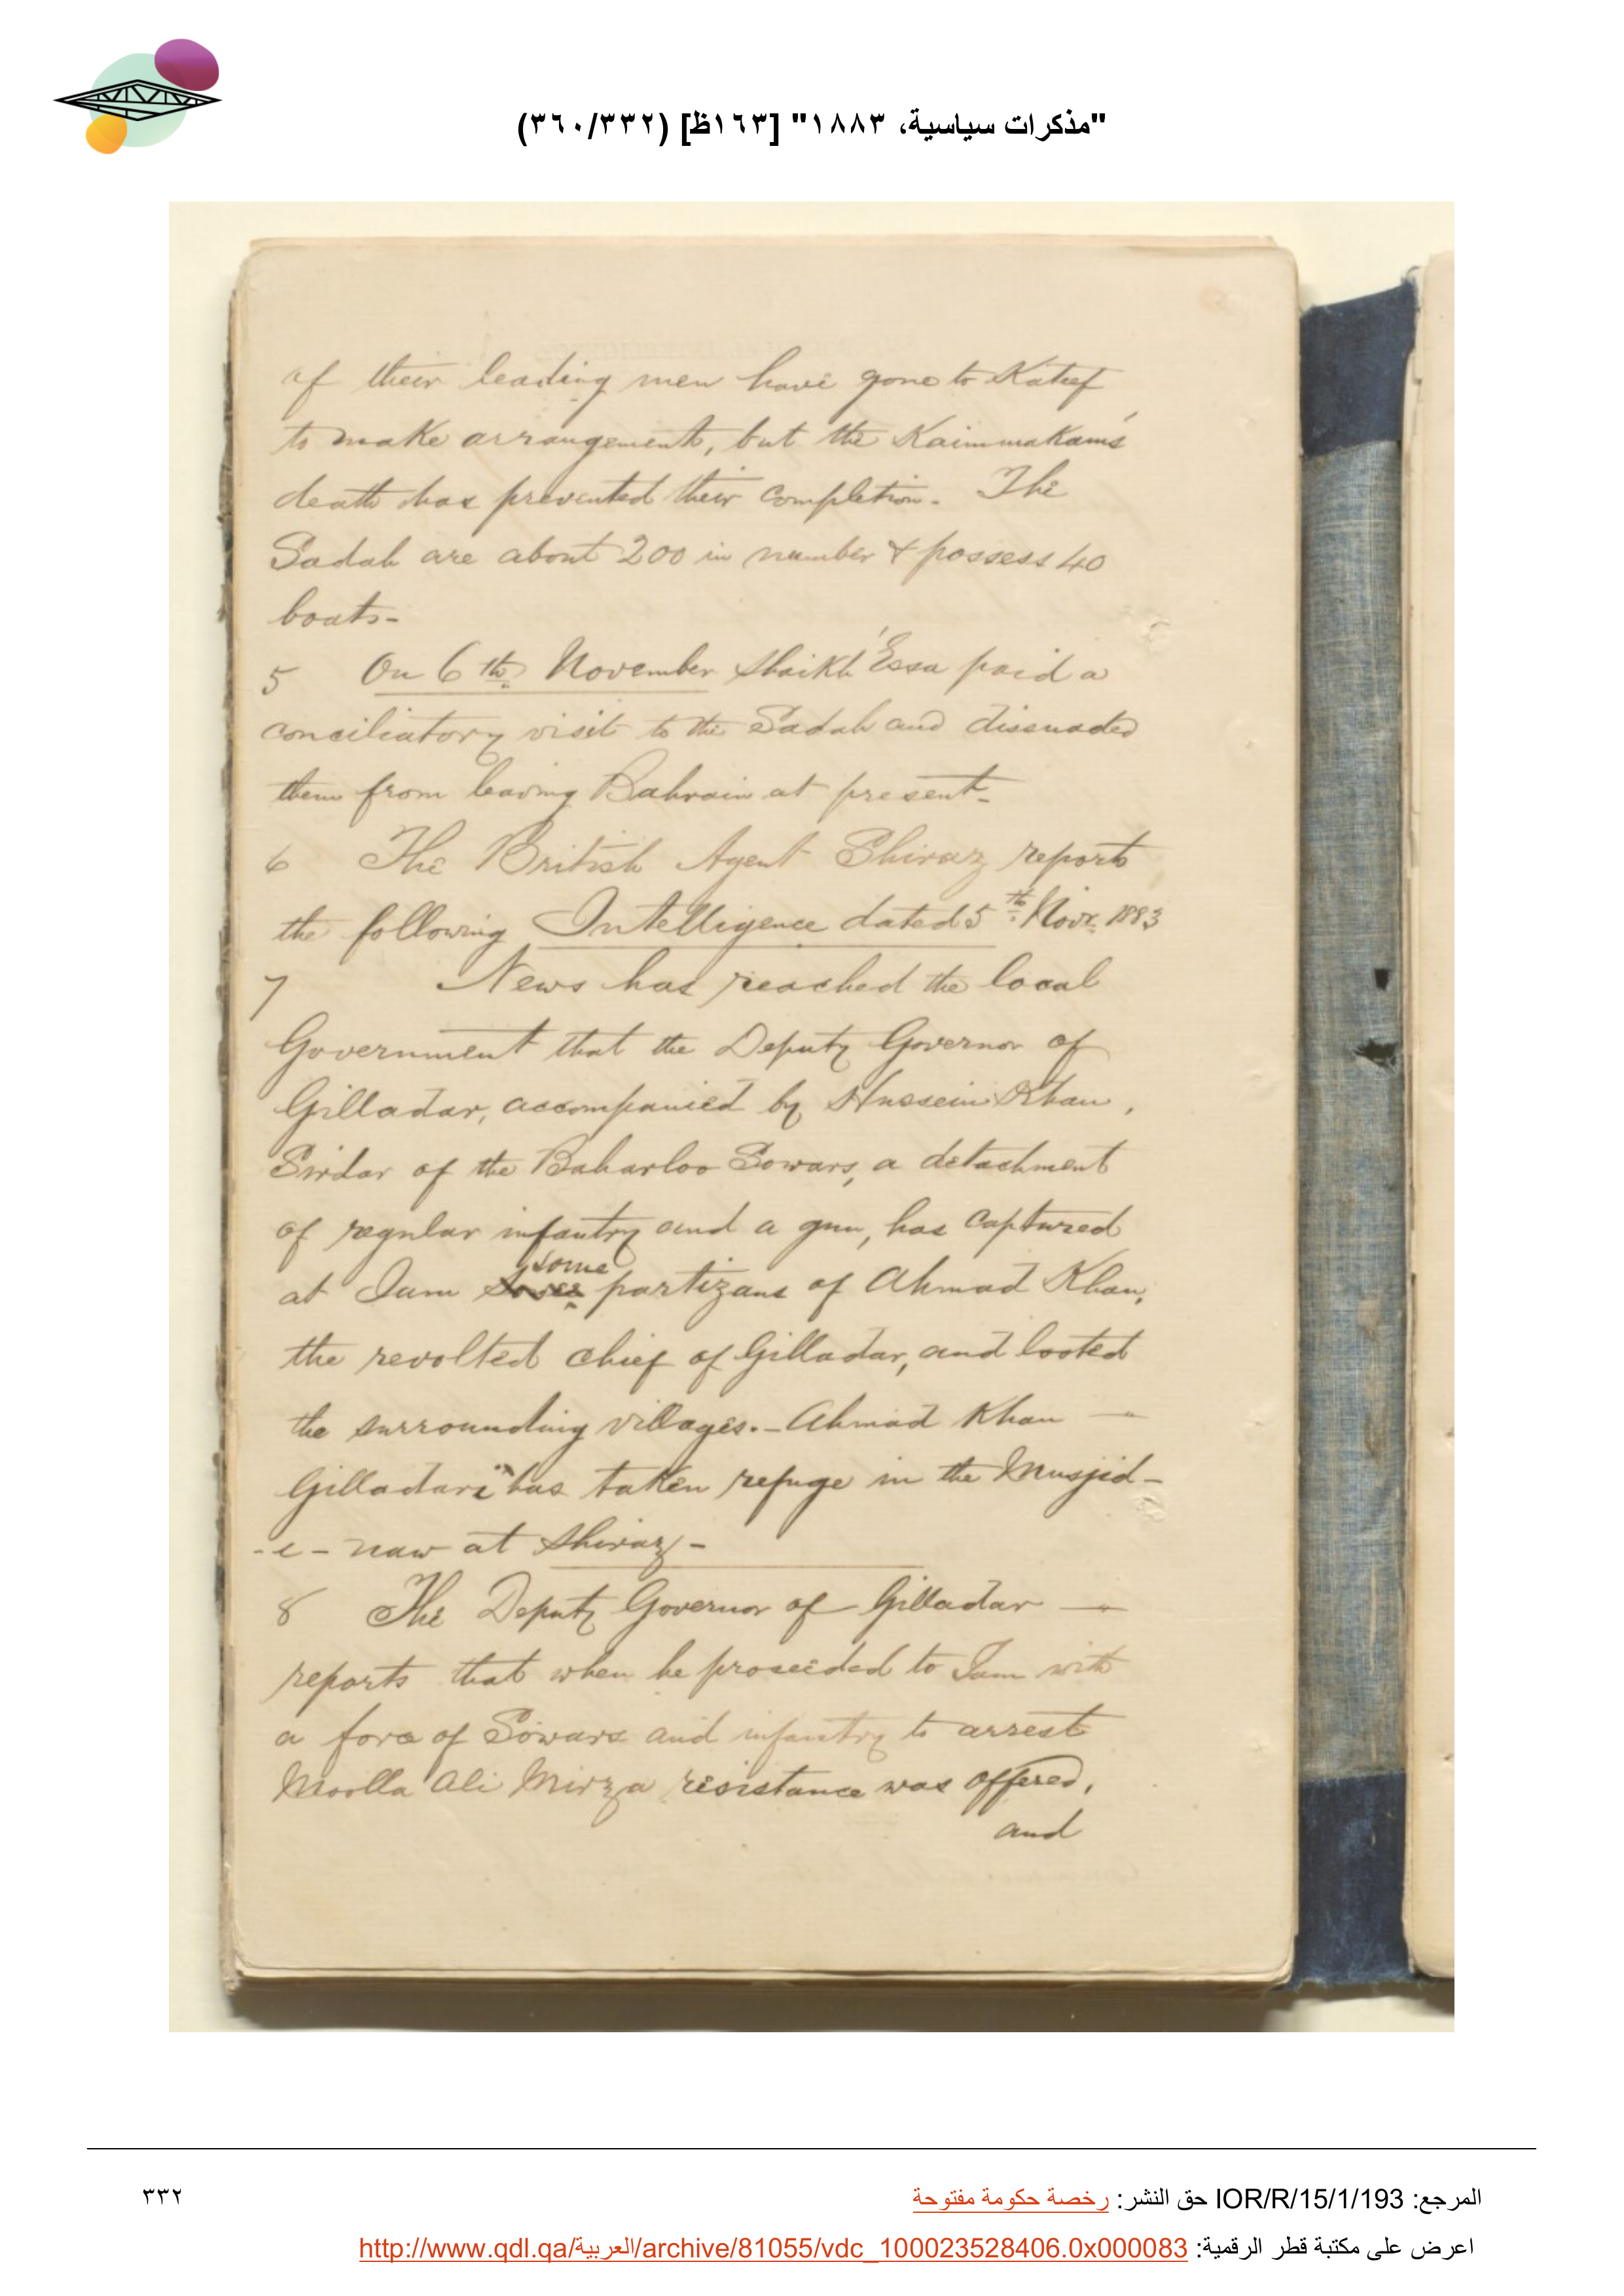 "مذكرات سياسية، ١٨٨٣" [١٦٣ظ] (٣٦٠/٣٣٢)
of their leading men have gone to Kateef
to make arrangements, but the Kaimmakam's
death has prevented their completion. The
Sadah are about 200 in number & possess 40
boats-
5 On 6th November Shaikh 'Essa paid a
conciliatory visit to the Sadah and dissuaded
them from leaving Bahrain at present-
6 The British Agent Shiraz reports
the following Intelligence dated 5th Novr. 1883
7 News has reached the local
Government that the Deputy Governor of
Gilladar, accompanied by Hussein Khan,
Sirdar of the Baharloo Sowars, a detachment
of regular infantry and a gun, has captured
at Jam some partizans of Ahmad Khan,
the revolted chief of Gilladar, and looted
the surrounding villages.- Ahmad Khan -
Gilladari has taken refuge in the Musjid-
-e- naw at Shiraz-
8 The Deputy Governor of Gilladar -
reports that when he proceeded to Jam with
a force of Sowars and infantry to arrest
Moolla Ali Mirza resistance was offered,
and
المرجع: IOR/R/15/1/193 حق النشر: رخصة حكومة مفتوحة
٣٣٢
اعرض على مكتبة قطر الرقمية: http://www.qdl.qa/العربية/archive/81055/vdc_100023528406.0x000083